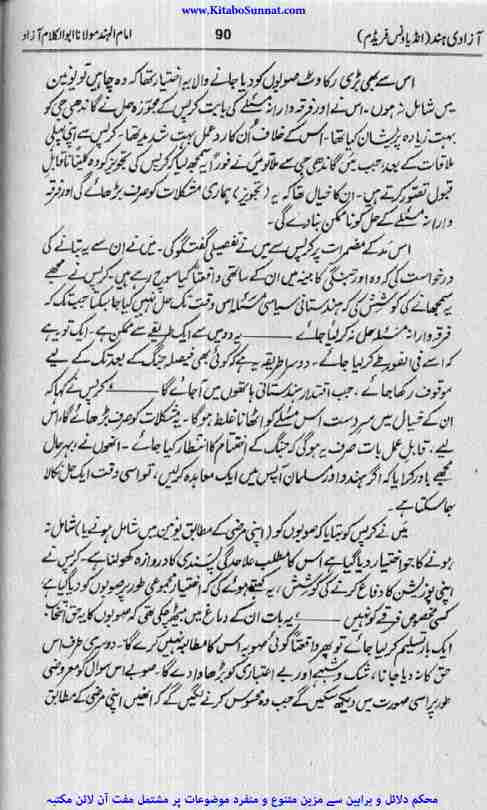 www.KitaboSunnat.com
آزادی ہند (انڈیا ونس فریڈم)
90
امام الہند مولانا ابوالکلام آزاد
اس سے بھی بڑی رکاوٹ صوبوں کو دیا جانے والا یہ اختیار تھا کہ وہ چاہیں تو یونین
میں شامل نہ ہوں۔ اس نے اور فرقہ وارانہ مسئلے کی بابت کرپس کے مجوزہ حل نے گاندھی جی کو
بہت زیادہ پریشان کیا تھا۔ اس کے خلاف اُن کا ردعمل بہت شدید تھا۔ کرپس سے اپنی پہلی
ملاقات کے بعد، جب میں گاندھی جی سے ملا تو میں نے فوراً یہ سمجھ لیا کہ کرپس کی تجویز کو وہ کلیتاً ناقابلِ
قبول تصور کرتے ہیں۔ ان کا خیال تھا کہ یہ (تجویز) ہماری مشکلات کو صرف بڑھائے گی اور فرقہ
وارانہ مسئلے کے حل کو ناممکن بنا دے گی۔
اس مد کے مضمرات پر کرپس سے میں نے تفصیلی گفتگو کی۔ میں نے ان سے یہ بتانے کی
درخواست کی کہ وہ اور جنگی کابینہ میں ان کے ساتھی واقعتاً کیا سوچ رہے ہیں۔ کرپس نے مجھے
یہ سمجھانے کی کوشش کی کہ ہندستانی سیاسی مسئلہ اس وقت تک حل نہیں کیا جا سکتا جب تک کہ
فرقہ وارانہ مسئلہ حل نہ کر لیا جائے ——— یہ دو میں سے ایک طریقے سے ممکن ہے۔ ایک تو یہ ہے
کہ اسے فی الفور طے کر لیا جائے۔ دوسرا طریقہ یہ ہے کہ کوئی بھی فیصلہ جنگ کے بعد تک کے لیے
موقوف رکھا جائے، جب اقتدار ہندستانی ہاتھوں میں آجائے گا ——— کرپس نے کہا کہ
ان کے خیال میں سردست اس مسئلے کو اٹھانا غلط ہوگا۔ یہ مشکلات کو صرف بڑھائے گا، اس
لیے، قابلِ عمل بات صرف یہ ہوگی کہ جنگ کے اختتام کا انتظار کیا جائے۔ انھوں نے بہر حال
مجھے باور کرایا کہ اگر ہندو اور مسلمان آپس میں ایک معاہدہ کر لیں، تو اسی وقت ایک حل نکالا
جا سکتا ہے۔
میں نے کرپس کو بتایا کہ صوبوں کو (اپنی مرضی کے مطابق یونین میں شامل ہونے یا) شامل نہ
ہونے کا جو اختیار دیا گیا ہے اس کا مطلب علاحدگی پسندی کا دروازہ کھولنا ہے۔ کرپس نے
اپنی پوزیشن کا دفاع کرنے کی کوشش، یہ کہتے ہوئے کی کہ اختیار مجموعی طور پر صوبوں کو دیا گیا ہے
کسی مخصوص فرقے کو نہیں ——— یہ بات ان کے دماغ میں بیٹھ چکی تھی کہ صوبوں کا یہ حق انتخاب
ایک بار تسلیم کر لیا جائے تو پھر واقعتاً کوئی صوبہ اس کا مطالبہ نہیں کرے گا۔ دوسری طرف اس
حق کا نہ دیا جانا، شک و شبہے اور بے اعتباری کو بڑھاوا دے گا۔ صوبے اس سوال کو معروضی
طور پر اسی صورت میں دیکھ سکیں گے جب وہ محسوس کرنے لگیں گے کہ انھیں اپنی مرضی کے مطابق
محکم دلائل و براہین سے مزین متنوع و منفرد موضوعات پر مشتمل مفت آن لائن مکتبہ